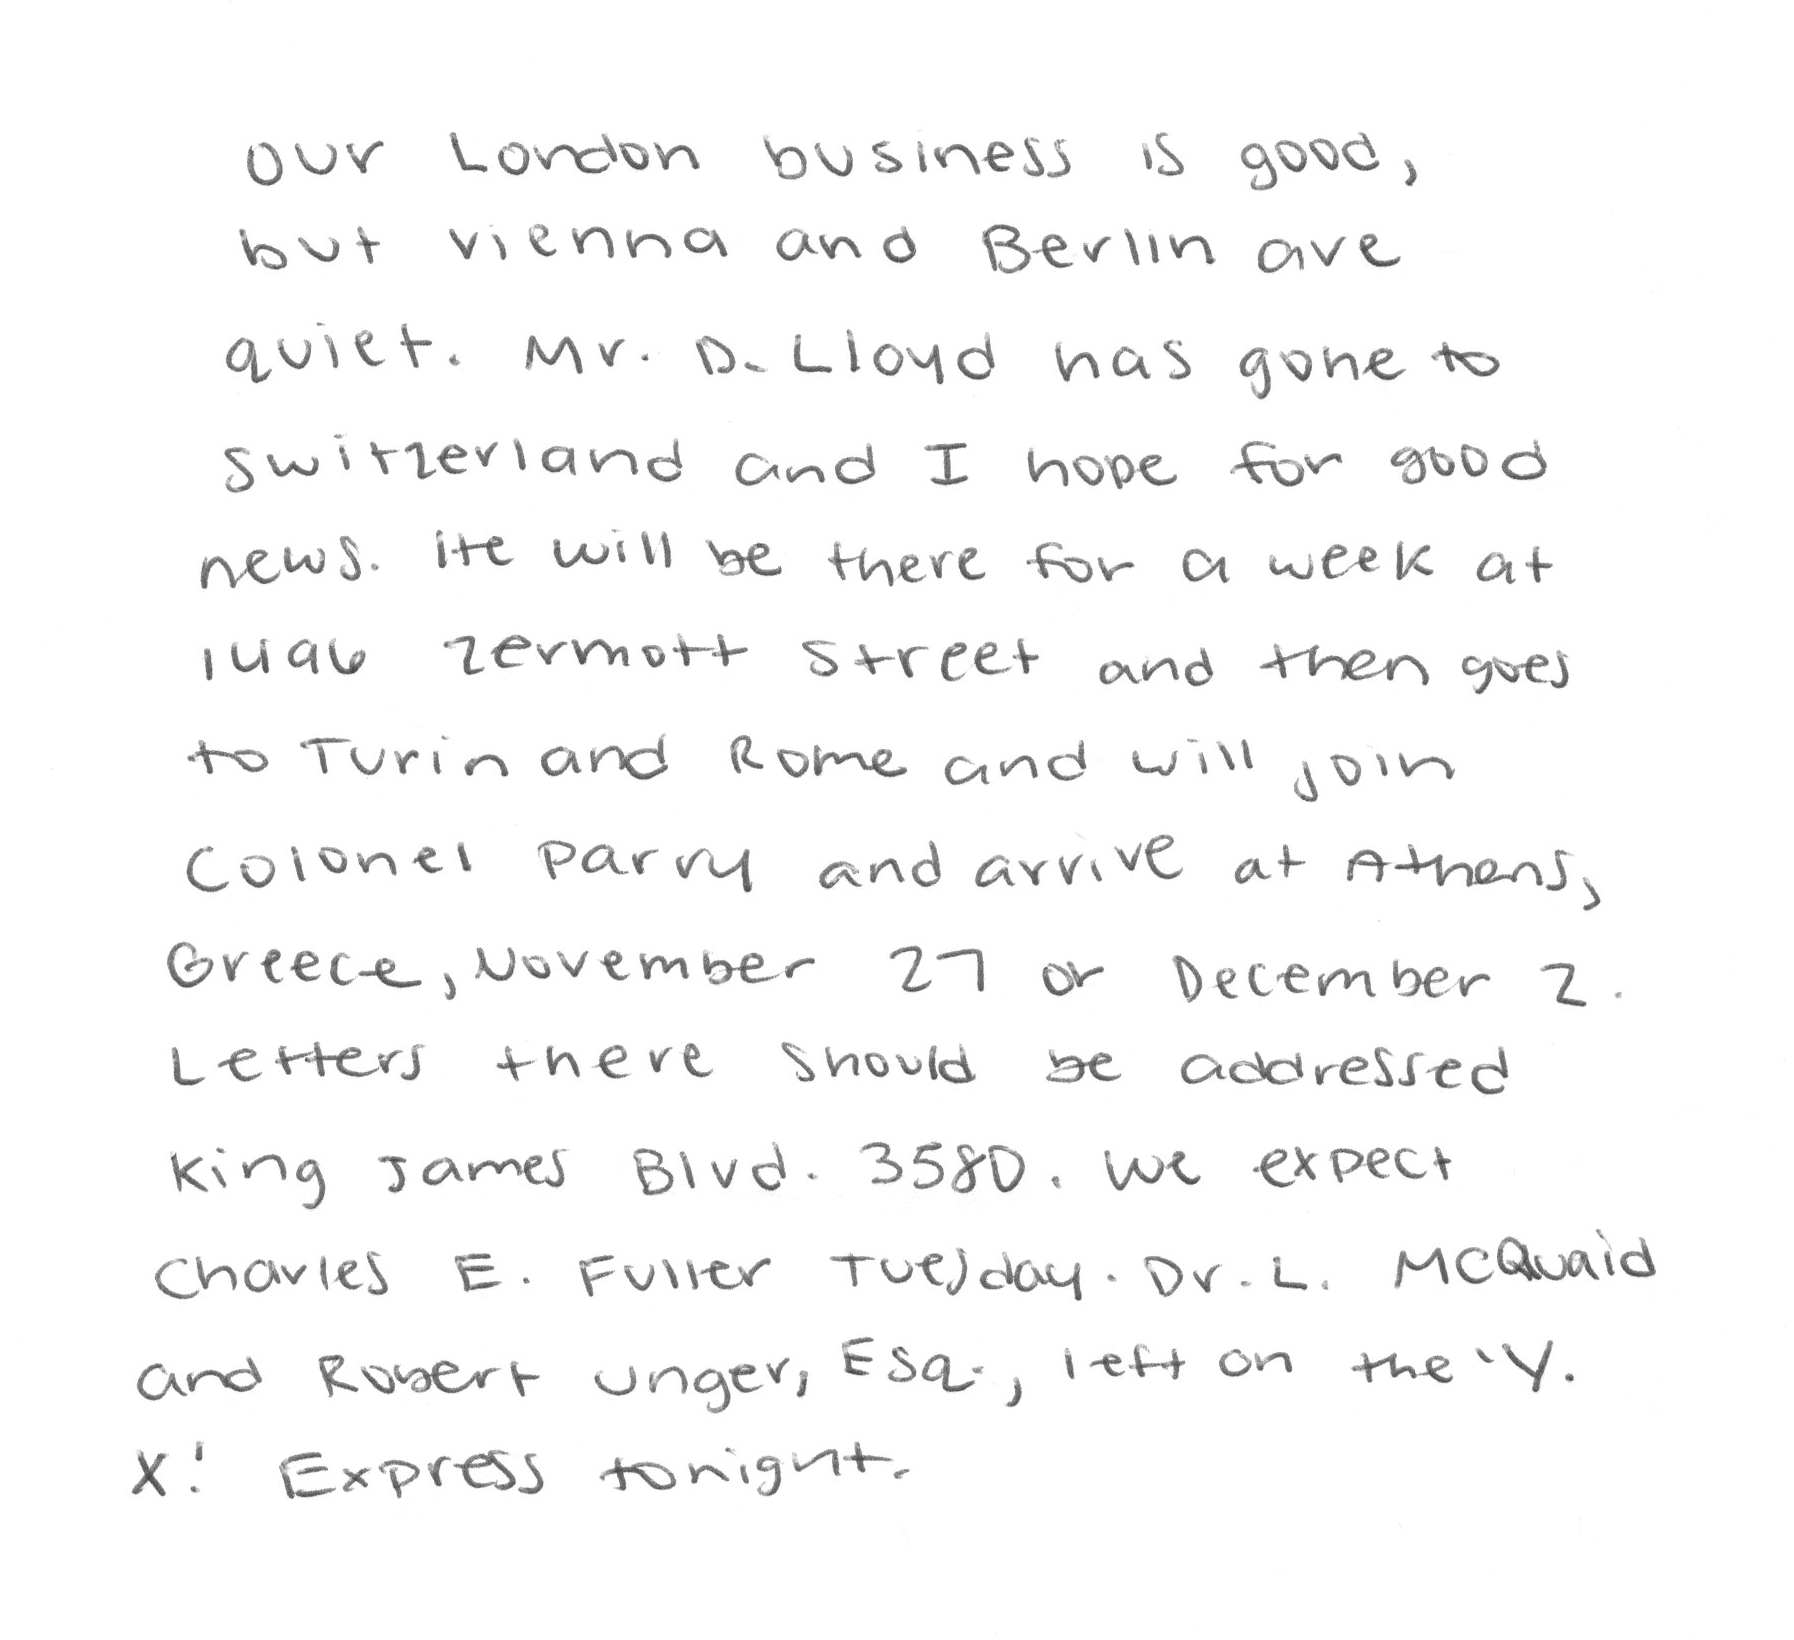 Our London business is good,
but Vienna and Berlin are
quiet. Mr. D. Lloyd has gone to
Switzerland and I hope for good
news. He will be there for a week at
1496 Zermott Street and then goes
to Turin and Rome and will join
Colonel Parry and arrive at Athens,
Greece, November 27 or December 2.
Letters there should be addressed
King James Blvd. 3580. We expect
Charles E. Fuller Tuesday. Dr. L. McQuaid
and Robert Unger, Esq., left on the 'Y.
X.' Express tonight.